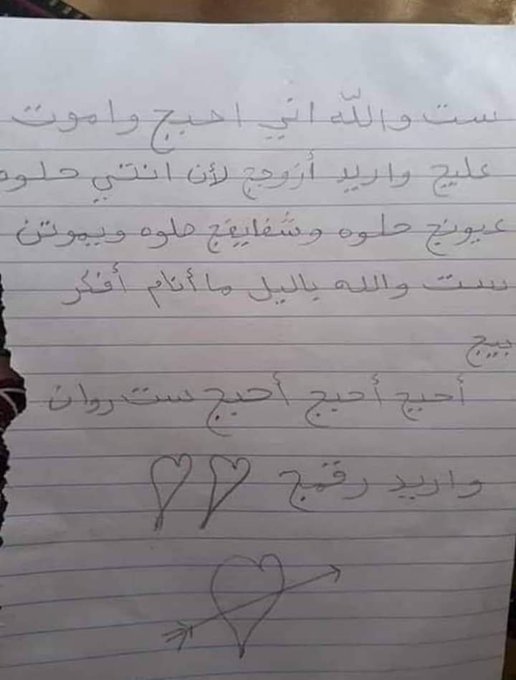 ست واللّه اني احبج واموت
عليج واريد أزوجج لأن انتي حلوه
عيونج حلوه وشفايفج حلوه ويموتن
ست والله باليل ما أنام أفكر
بيج
أحبج أحبج أحبج ست روان
واريد رقمج